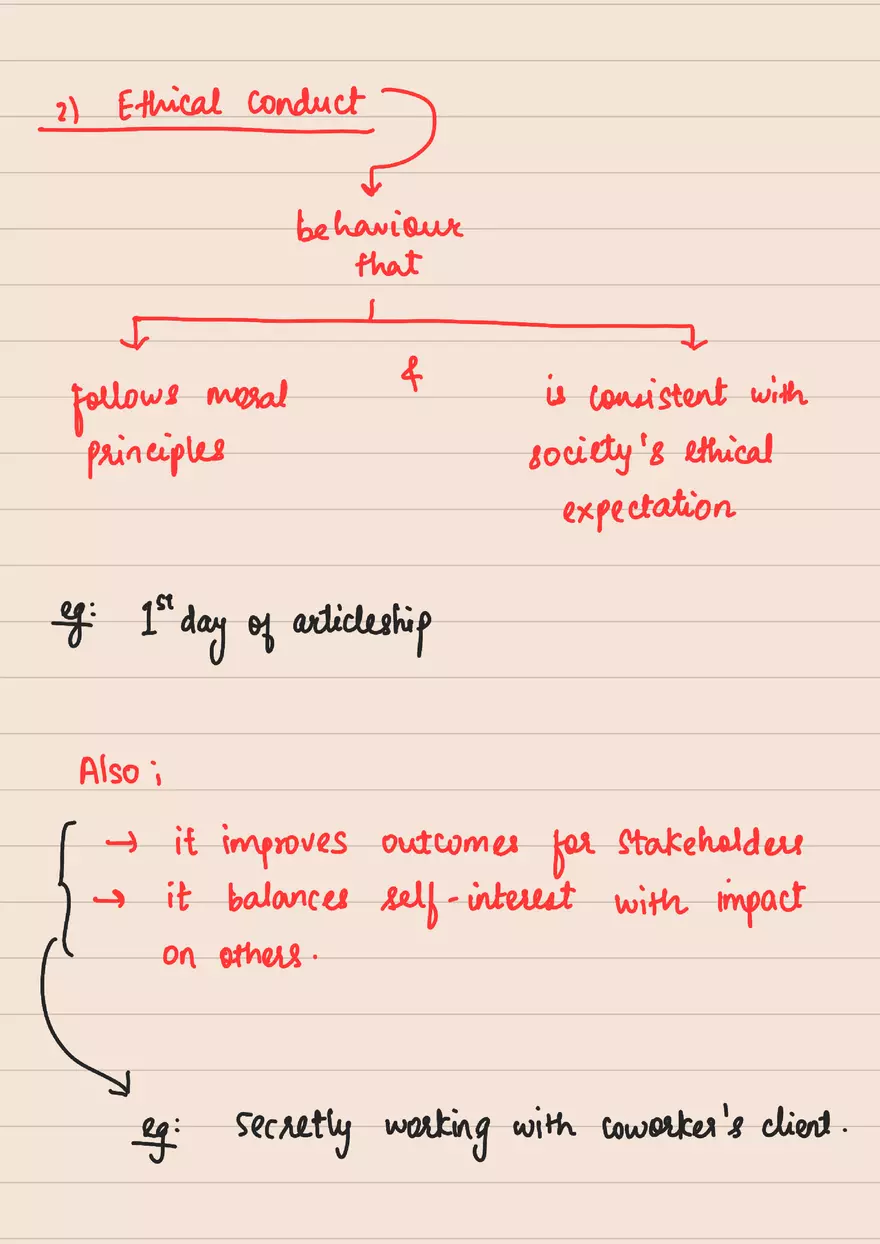 2) Ethical Conduct
behaviour
that
follows moral & is consistent with
principles society's ethical
expectation
eg: 1st day of articleship
Also ;
→ it improves outcomes for stakeholders
→ it balances self-interest with impact
on others.
eg: secretly working with coworker's client.